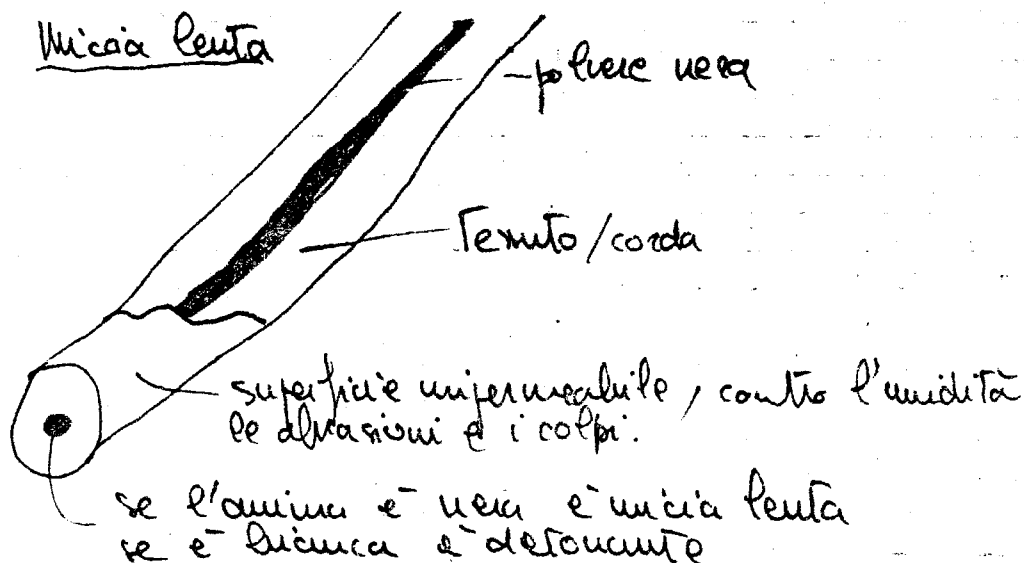 Miccia lenta
polvere nera
Tessuto/corda
superficie impermeabile, contro l'umidità
le abrasioni e i colpi.
se l'anima è nera è miccia lenta
se è bianca è detonante